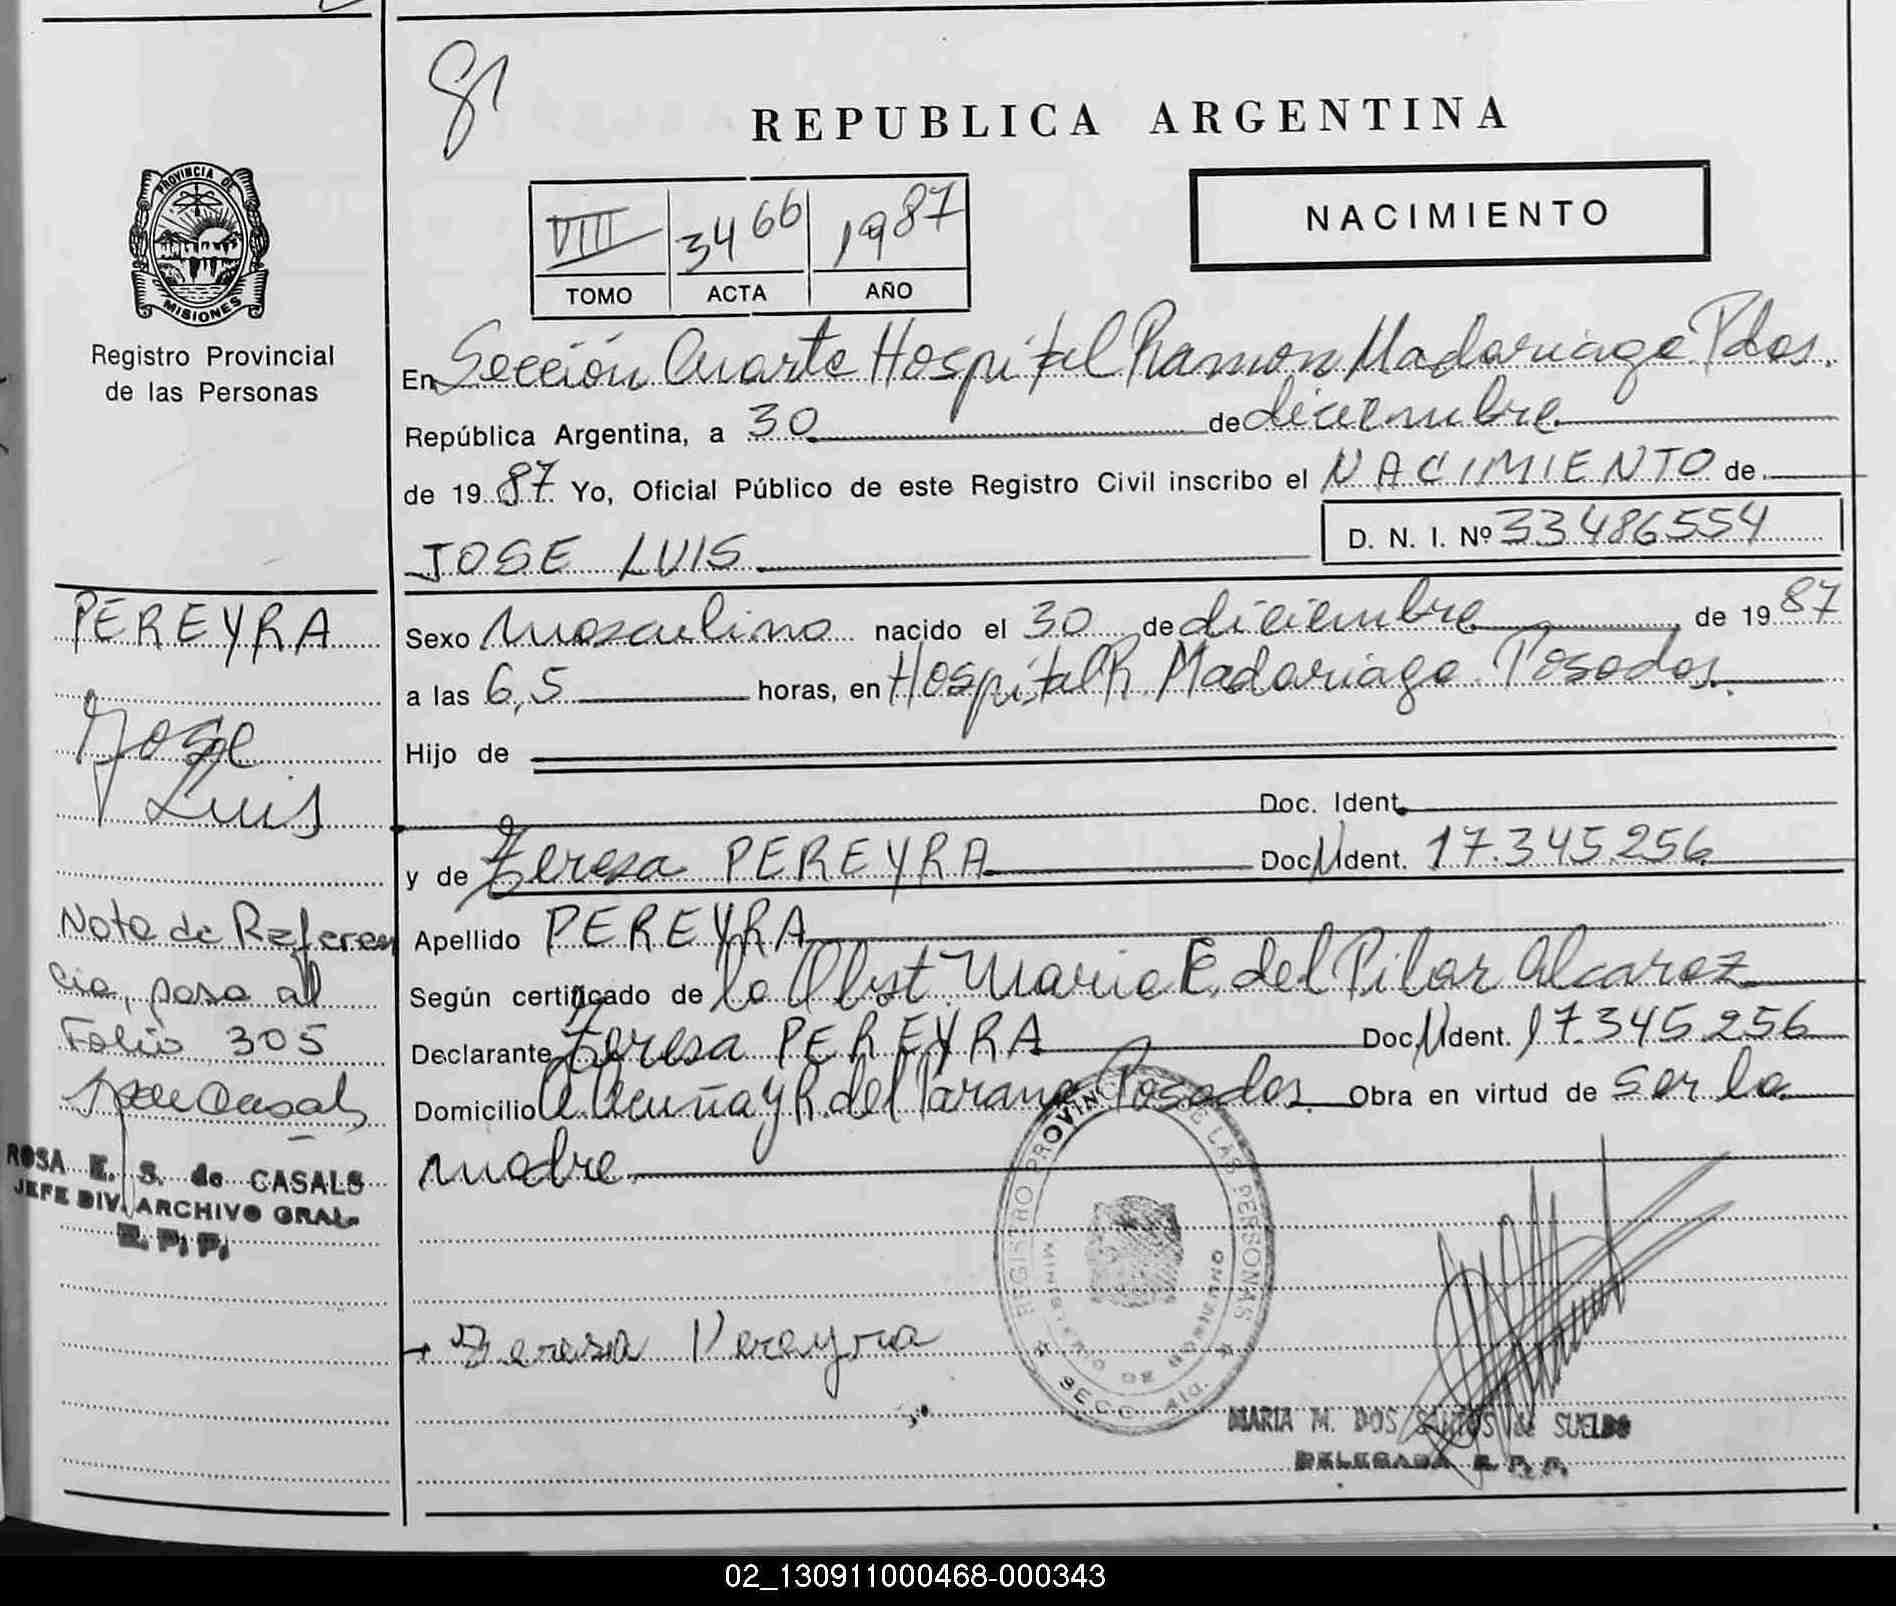 REPUBLICA ARGENTINA
NACIMIENTO
VIII 3466 1987
TOMO ACTA AÑO
PROVINCIA DE
MISIONES
Registro Provincial
de las Personas
En Sección Cuarta Hospital Ramon Madariaga Pdas.
República Argentina, a 30 de diciembre
de 1987 Yo, Oficial Público de este Registro Civil inscribo el NACIMIENTO de
JOSE LUIS D. N. I. Nº 33486554
PEREYRA
Jose
Luis
Sexo Masculino nacido el 30 de diciembre de 1987
a las 6,5 horas, en Hospital R. Madariaga Posadas.
Hijo de
Doc. Ident.
y de Teresa PEREYRA Doc. Ident. 17.345.256
Apellido PEREYRA
Según certificado de la Obst. Maria E. del Pilar Alcaraz
Declarante Teresa PEREYRA Doc. Ident. 17.345.256
Domicilio A. Acuña y R. del Parana Posadas. Obra en virtud de ser la
madre
Nota de Referen
cia, pasa al
Folio 305
ROSA E. S. de CASALS
JEFE DIV. ARCHIVO GRAL.
R. P. P.
REGISTRO PROVINCIAL DE LAS PERSONAS
MINISTERIO DE GOBIERNO
SECC. 4ta.
Teresa Pereyra
MARIA M. DOS SANTOS de SUELDO
DELEGADA R. P. P.
02_130911000468-000343